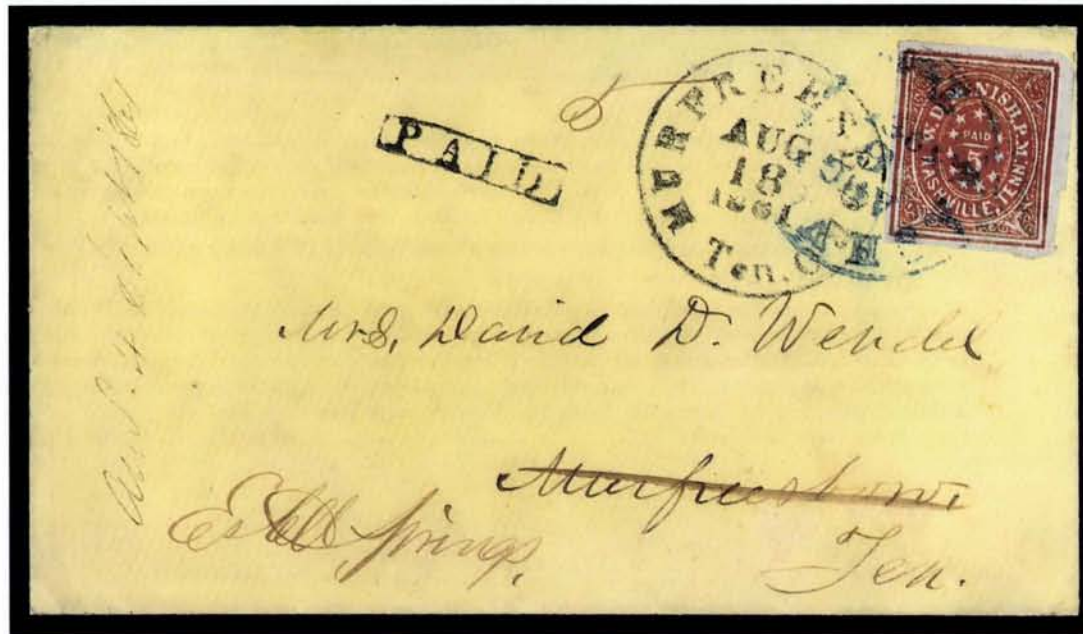 PAID
5
MURFREESBORO
AUG
18
1861
Ten.
W. D. McNISH, P.M.
PAID
5
NASHVILLE, TENN.
Mrs. David D. Wendel
Murfreesboro
Estill Springs,
Ten.